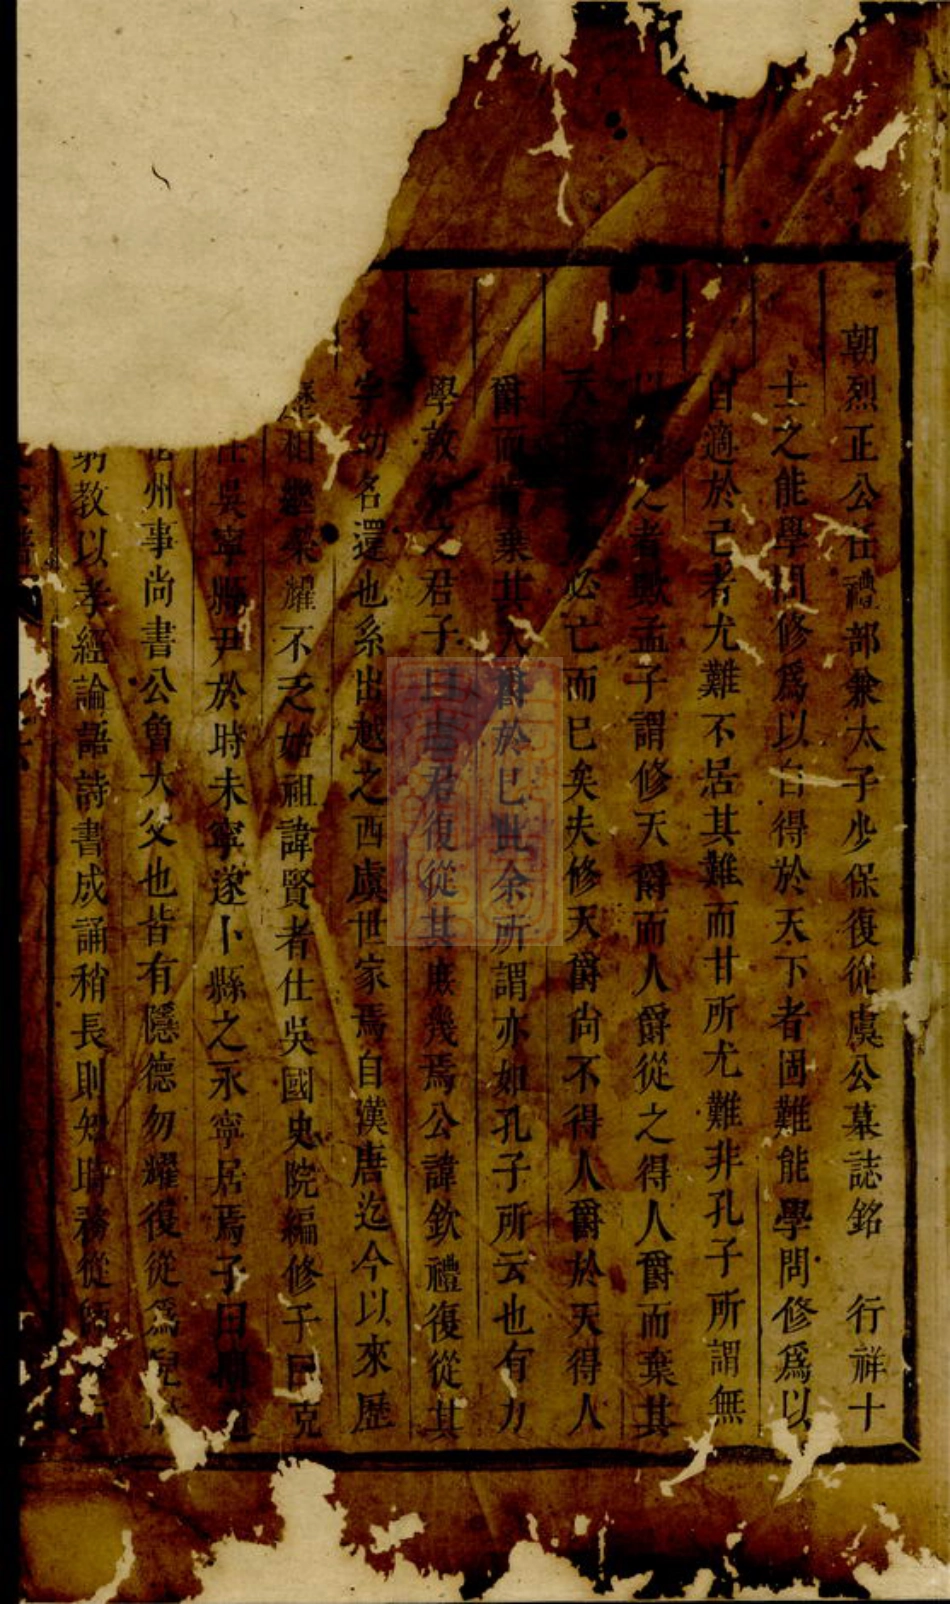 朝烈正公任禮部兼太子少保復從虞公墓誌銘 行祥十
士之能學問修爲以自得於天下者固難能學問修爲以
自適於己者尤難不居其難而甘所尤難非孔子所謂無
之者歟孟子謂修天爵而人爵從之得人爵而棄其
天必亡而已矣夫修天爵尚不得人爵於天得人
爵而棄其人爵於已此余所謂亦如孔子所云也有力
學敦之君子曰吾君復從其庶幾焉公諱欽禮復從其
字幼名還也系出越之西虞世家焉自漢唐迄今以來歷
相繼榮耀不乏始祖諱賢者仕吳國史院編修子曰克
任吳寧縣尹於時未寧遂卜縣之永寧居焉子曰
州事尚書公魯大父也皆有隱德勿耀復從爲兒
教以孝經論語詩書成誦稍長則知時務從